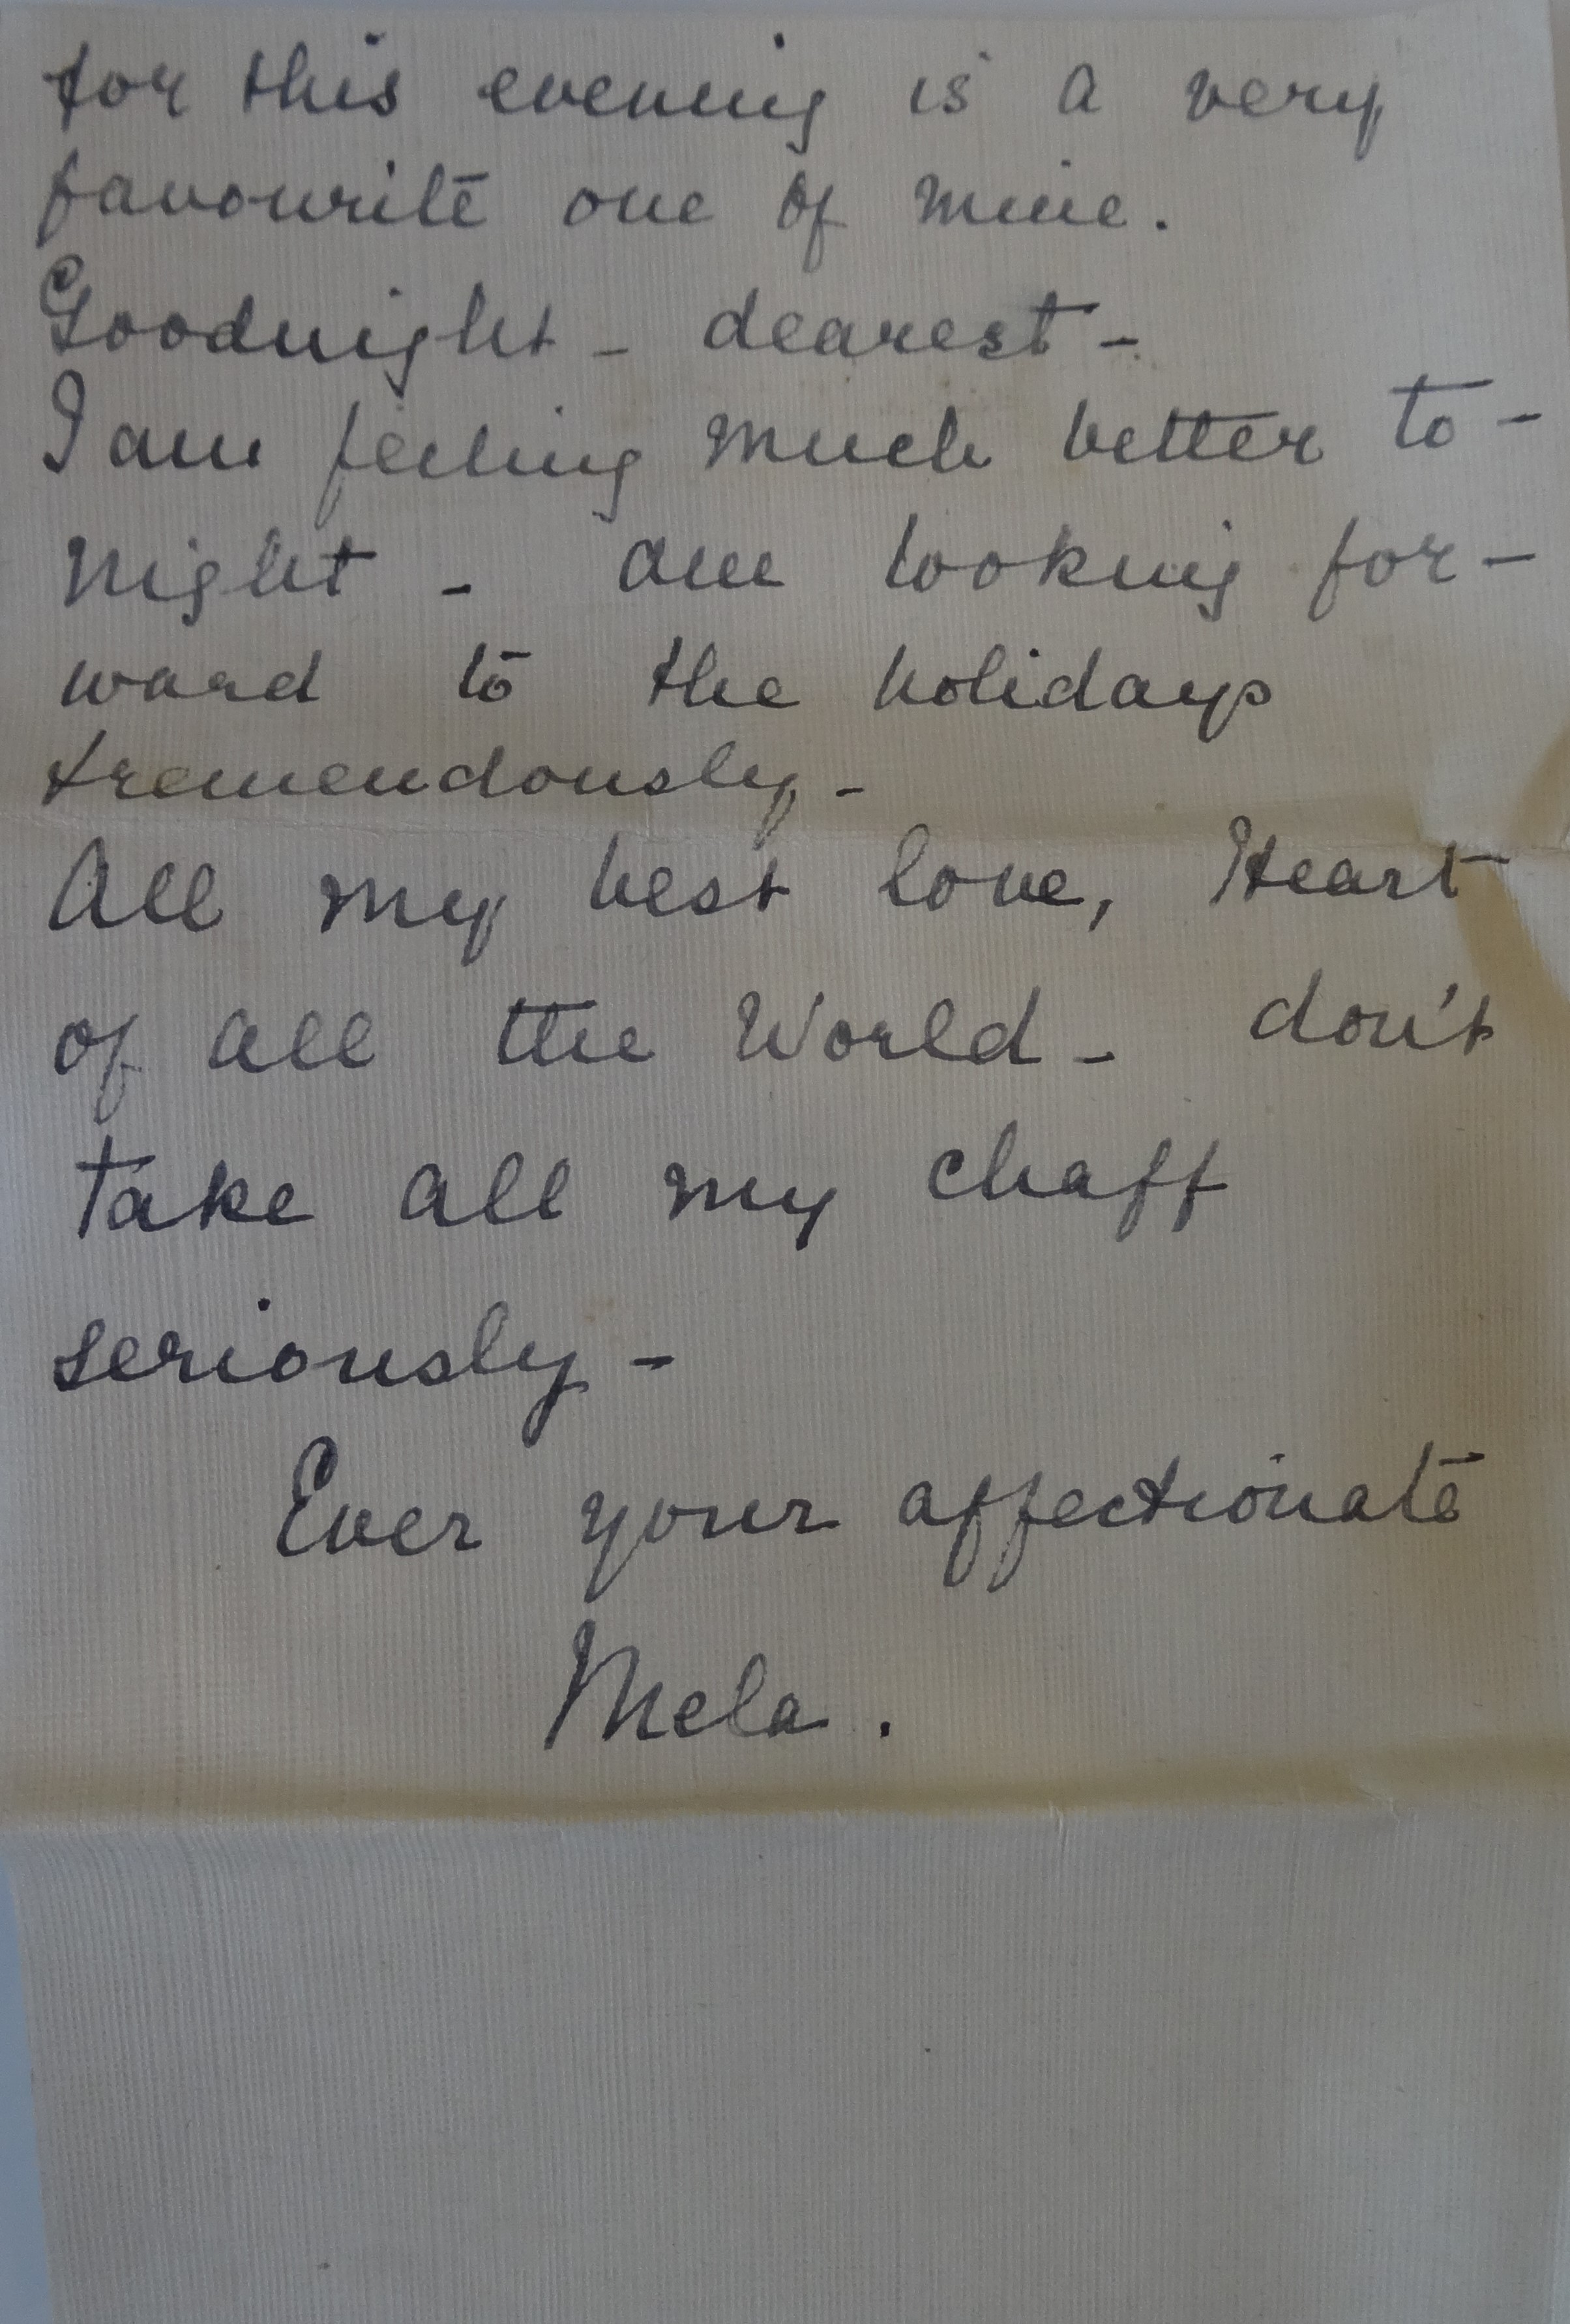 for this evening is a very
favourite one of mine.
Goodnight - dearest -
I am feeling much better to-
night - am looking for-
ward to the holidays
tremendously -
All my best love, Heart
of all the World - don't
take all my chaff
seriously -
Ever your affectionate
Mela.